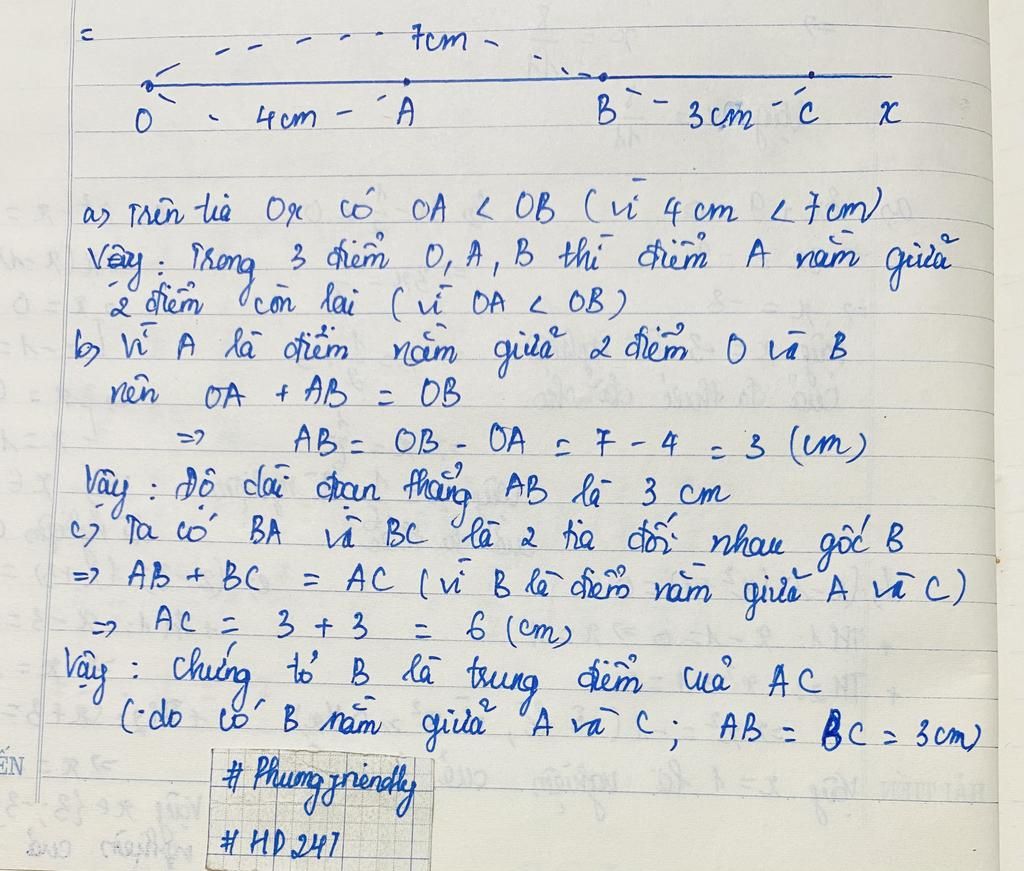 7cm
O 4cm A B 3cm C x
a) Trên tia Ox có OA < OB (vì 4cm < 7cm)
Vậy: Trong 3 điểm O, A, B thì điểm A nằm giữa
2 điểm còn lại (vì OA < OB)
b) Vì A là điểm nằm giữa 2 điểm O và B
nên OA + AB = OB
=> AB = OB - OA = 7 - 4 = 3 (cm)
Vậy: Độ dài đoạn thẳng AB là 3 cm
c) Ta có BA và BC là 2 tia đối nhau gốc B
=> AB + BC = AC (vì B là điểm nằm giữa A và C)
=> AC = 3 + 3 = 6 (cm)
Vậy: Chứng tỏ B là trung điểm của AC
(do có B nằm giữa A và C; AB = BC = 3cm)
ẾN
# Phungfriendly
# HD247